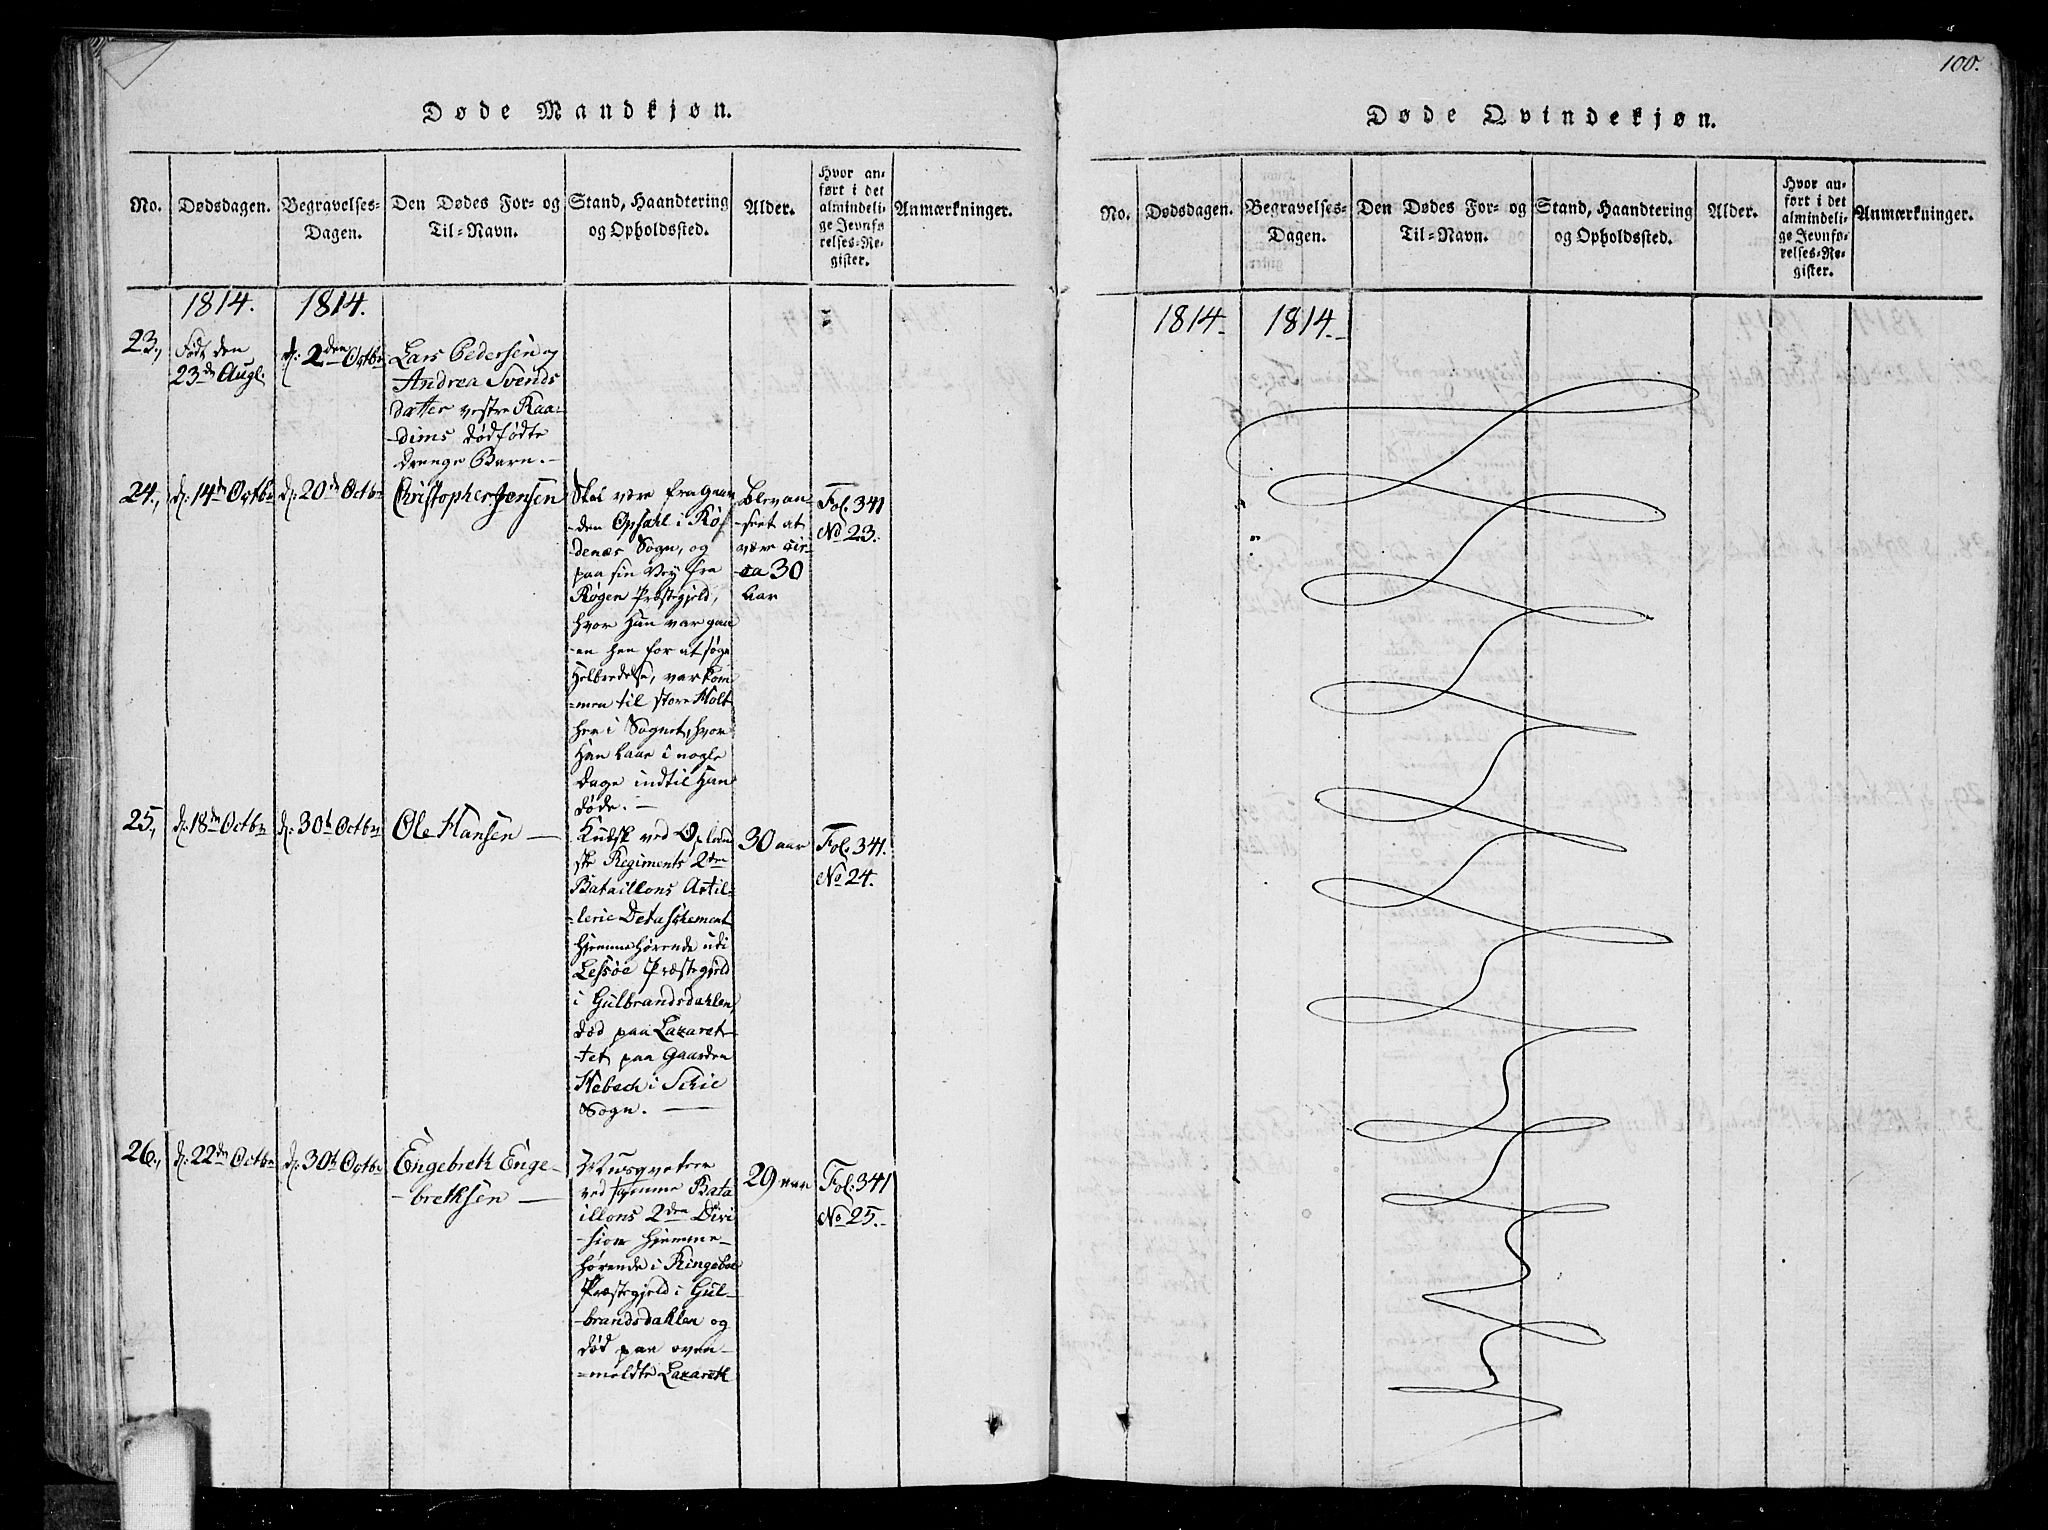 100.
Døde Mandkjøn.
No.
Dødsdagen.
Begravelses-
Dagen.
Den Dødes For- og
Til-Navn.
Stand, Haandtering
og Opholdssted.
Alder.
Hvor an-
ført i det
almindeli-
ge Jevnfø-
relses-Re-
gister.
Anmærkninger.
1814.
1814.
23.,
Født den
23de Augl.
d: 2den Octbr
Lars Pedersen og
Andrea Svends
datter vestre Raa-
-dims dødfødte
drenge Barn. -
24.,
d: 14de Octbr
d: 20de Octbr
Christopher Jensen
Skal være fra Gaar
-den Opsahl i Rø-
denæs Sogn, og
paa sin Vey fra
Røgen Præstegjeld,
hvor Han var gaa
-en hen for at søge
Helbredelse, var kom
-men til store Holt
her i Sognet, hvor
Han laae i nogle
Dage indtil Han
døde. -
blev an-
-seet at
være cir-
ca 30
Aar
Fol. 341
No 23.
25.,
d: 18de Octbr
d: 30te Octbr
Ole Hansen -
Kudsk ved Oplan
ske Regiments 2den
Bataillons Artil-
-lerie Detaschement
hjemmehørende udi
Lessøe Præstegjeld
i Gulbrandsdahlen,
død paa Lazaret-
-tet paa Gaarden
Hebech i Schie
Sogn. -
30 aar
Fol: 341.
No 24.
26.,
d: 22de Octbr
d: 30te Octbr
Engebreth Enge-
-brethsen -
Musqveteer
ved samme Bata
illons 2den Divi
-sion hjemme-
hørende i Ringeboe
Præstegjeld i Gul-
-brandsdahlen og
død paa oven-
=meldte Lazareth
29 aar
Fol: 341
No 25.-
Døde Qvindekjøn.
No.
Dødsdagen.
Begravelses-
Dagen.
Den Dødes For- og
Til-Navn.
Stand, Haandtering
og Opholdssted.
Alder.
Hvor an-
ført i det
almindeli-
ge Jevnfø-
relses-Re-
gister.
Anmærkninger.
1814.
1814.